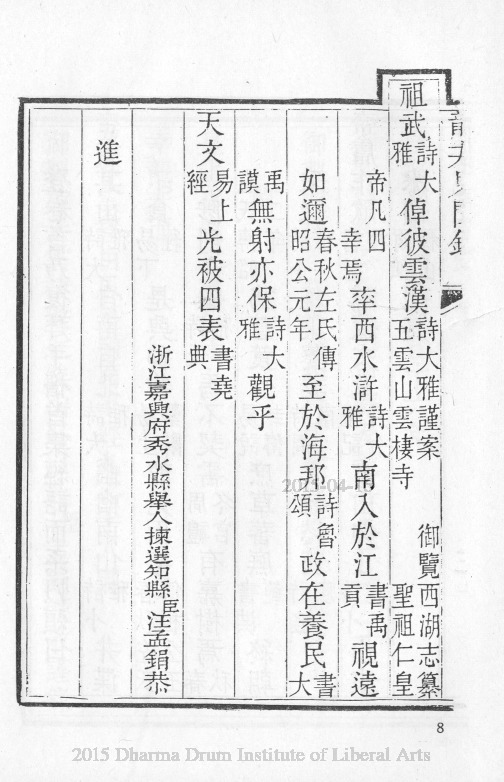 祖武詩大雅倬彼雲漢詩大雅謹案 御覽西湖志纂五雲山雲棲寺 聖祖仁皇
帝凡四幸焉率西水滸詩大雅南入於江書禹貢視遠
如邇春秋左氏傳昭公元年至於海邦詩魯頌政在養民書大
禹謨無射亦保詩大雅觀乎
天文易上經光被四表書堯典
浙江嘉興府秀水縣舉人揀選知縣臣汪孟鋗恭
進
8
2015 Dharma Drum Institute of Liberal Arts